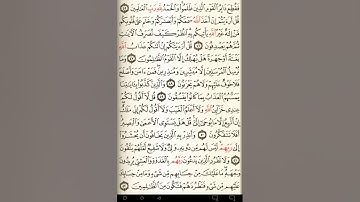 فَقُطِعَ دَابِرُ ٱلْقَوْمِ ٱلَّذِينَ ظَلَمُوا۟ وَٱلْحَمْدُ لِلَّهِ رَبِّ ٱلْعَٰلَمِينَ
٤٥ قُلْ أَرَءَيْتُمْ إِنْ أَخَذَ ٱللَّهُ سَمْعَكُمْ وَأَبْصَٰرَكُمْ وَخَتَمَ عَلَىٰ قُلُوبِكُم
مَّنْ إِلَٰهٌ غَيْرُ ٱللَّهِ يَأْتِيكُم بِهِ ٱنظُرْ كَيْفَ نُصَرِّفُ ٱلْءَايَٰتِ
ثُمَّ هُمْ يَصْدِفُونَ ٤٦ قُلْ أَرَءَيْتَكُمْ إِنْ أَتَىٰكُمْ عَذَابُ ٱللَّهِ
بَغْتَةً أَوْ جَهْرَةً هَلْ يُهْلَكُ إِلَّا ٱلْقَوْمُ ٱلظَّٰلِمُونَ ٤٧
وَمَا نُرْسِلُ ٱلْمُرْسَلِينَ إِلَّا مُبَشِّرِينَ وَمُنذِرِينَ فَمَنْ ءَامَنَ وَأَصْلَحَ
فَلَا خَوْفٌ عَلَيْهِمْ وَلَا هُمْ يَحْزَنُونَ ٤٨ وَٱلَّذِينَ كَذَّبُوا۟ بِـَٔايَٰتِنَا
يَمَسُّهُمُ ٱلْعَذَابُ بِمَا كَانُوا۟ يَفْسُقُونَ ٤٩ قُل لَّآ أَقُولُ لَكُمْ
عِندِى خَزَآئِنُ ٱللَّهِ وَلَآ أَعْلَمُ ٱلْغَيْبَ وَلَآ أَقُولُ لَكُمْ إِنِّى مَلَكٌ
إِنْ أَتَّبِعُ إِلَّا مَا يُوحَىٰٓ إِلَىَّ قُلْ هَلْ يَسْتَوِى ٱلْأَعْمَىٰ وَٱلْبَصِيرُ
أَفَلَا تَتَفَكَّرُونَ ٥٠ وَأَنذِرْ بِهِ ٱلَّذِينَ يَخَافُونَ أَن يُحْشَرُوٓا۟
إِلَىٰ رَبِّهِمْ لَيْسَ لَهُم مِّن دُونِهِۦ وَلِىٌّ وَلَا شَفِيعٌ لَّعَلَّهُمْ يَتَّقُونَ
٥١ وَلَا تَطْرُدِ ٱلَّذِينَ يَدْعُونَ رَبَّهُم بِٱلْغَدَوٰةِ وَٱلْعَشِىِّ يُرِيدُونَ
وَجْهَهُۥ مَا عَلَيْكَ مِنْ حِسَابِهِم مِّن شَىْءٍ وَمَا مِنْ حِسَابِكَ
عَلَيْهِم مِّن شَىْءٍ فَتَطْرُدَهُمْ فَتَكُونَ مِنَ ٱلظَّٰلِمِينَ ٥٢